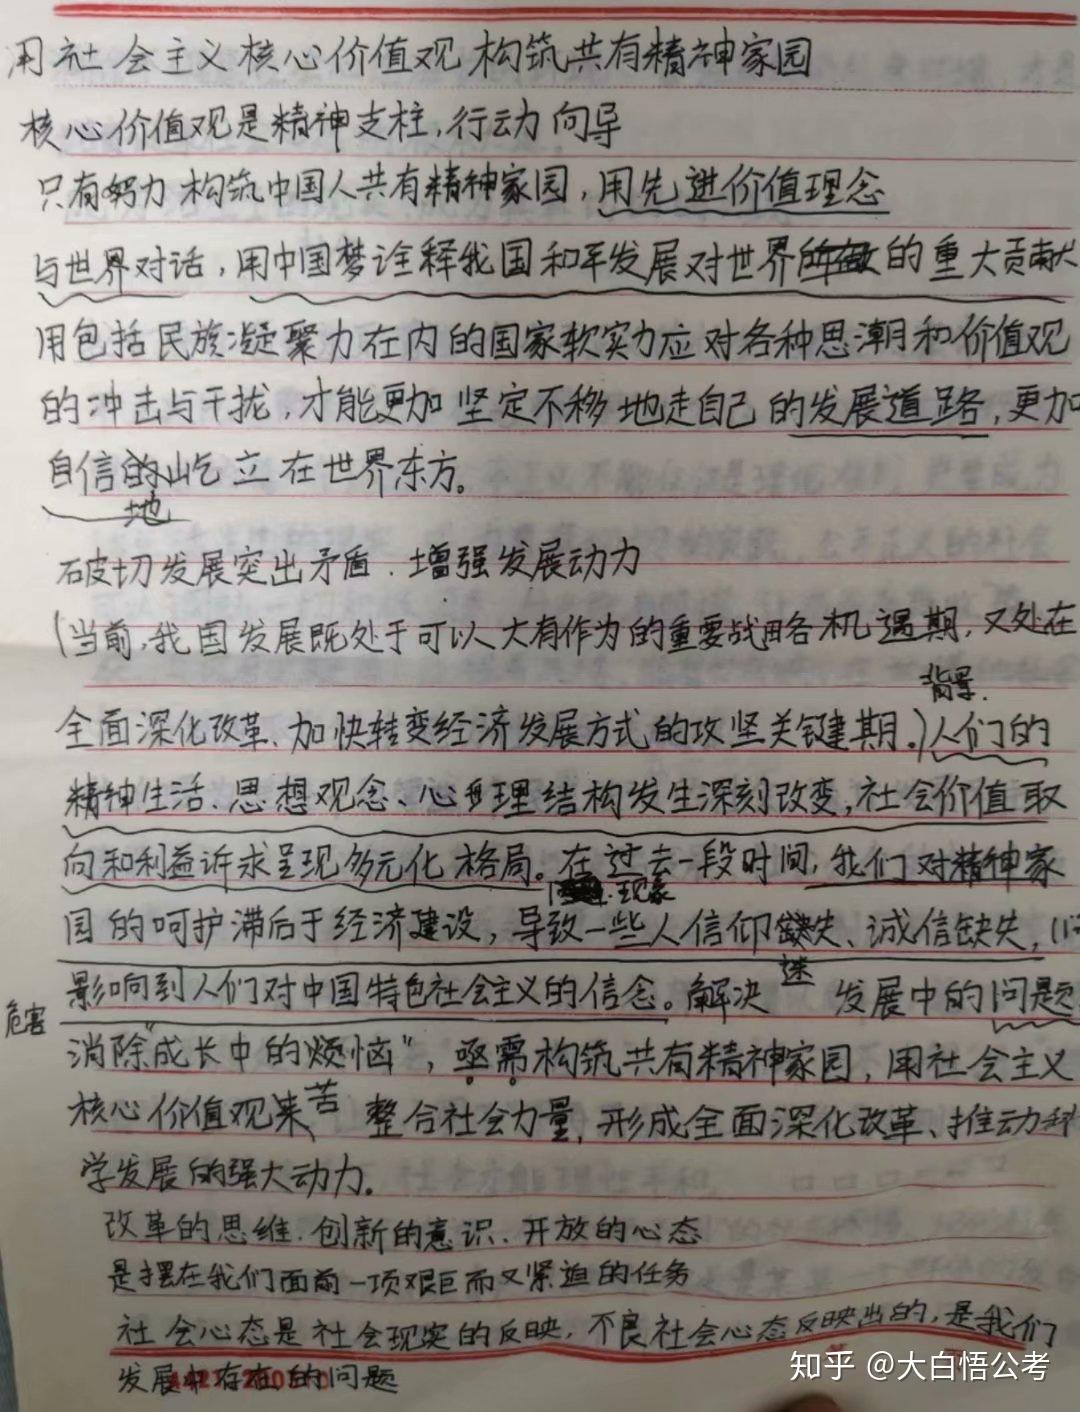 用社会主义核心价值观构筑共有精神家园
核心价值观是精神支柱,行动向导
只有努力构筑中国人共有精神家园,用先进价值理念
与世界对话,用中国梦诠释我国和平发展对世界的重大贡献
用包括民族凝聚力在内的国家软实力应对各种思潮和价值观
的冲击与干扰,才能更加坚定不移地走自己的发展道路,更加
自信的屹立在世界东方。
地
破切发展突出矛盾.增强发展动力
(当前,我国发展既处于可以大有作为的重要战略机遇期,又处在
背景.
全面深化改革、加快转变经济发展方式的攻坚关键期.)人们的
精神生活、思想观念、心理结构发生深刻改变,社会价值取
向和利益诉求呈现多元化格局。在过去一段时间,我们对精神家
现象
园的呵护滞后于经济建设,导致一些人信仰缺失、诚信缺失,
迷
影响到人们对中国特色社会主义的信念。解决 发展中的问题
危害
消除"成长中的烦恼",亟需构筑共有精神家园,用社会主义
核心价值观来 苦 整合社会力量,形成全面深化改革、推动科
学发展的强大动力。
改革的思维.创新的意识、开放的心态
是摆在我们面前一项艰巨而又紧迫的任务
社会心态是社会现实的反映,不良社会心态反映出的,是我们
发展中存在的问题
知乎 @大白悟公考